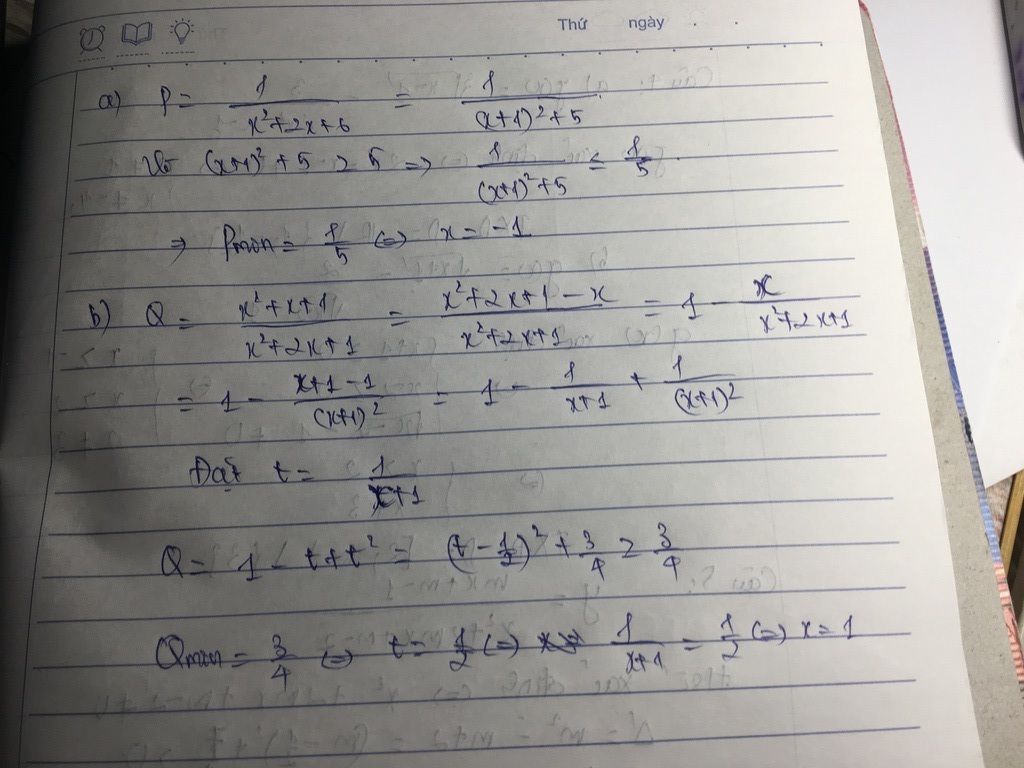 Thứ ngày
a) P = 1/(x²+2x+6) = 1/((x+1)²+5)
Vì (x+1)²+5 ≥ 5 => 1/((x+1)²+5) ≤ 1/5
=> Pmin = 1/5 <=> x = -1
b) Q = (x²+x+1)/(x²+2x+1) = (x²+2x+1-x)/(x²+2x+1) = 1 - x/(x²+2x+1)
= 1 - (x+1-1)/(x+1)² = 1 - 1/(x+1) + 1/(x+1)²
Đặt t = 1/(x+1)
Q = 1 - t+t² = (t - 1/2)² + 3/4 ≥ 3/4
Qmin = 3/4 <=> t = 1/2 <=> 1/(x+1) = 1/2 <=> x = 1